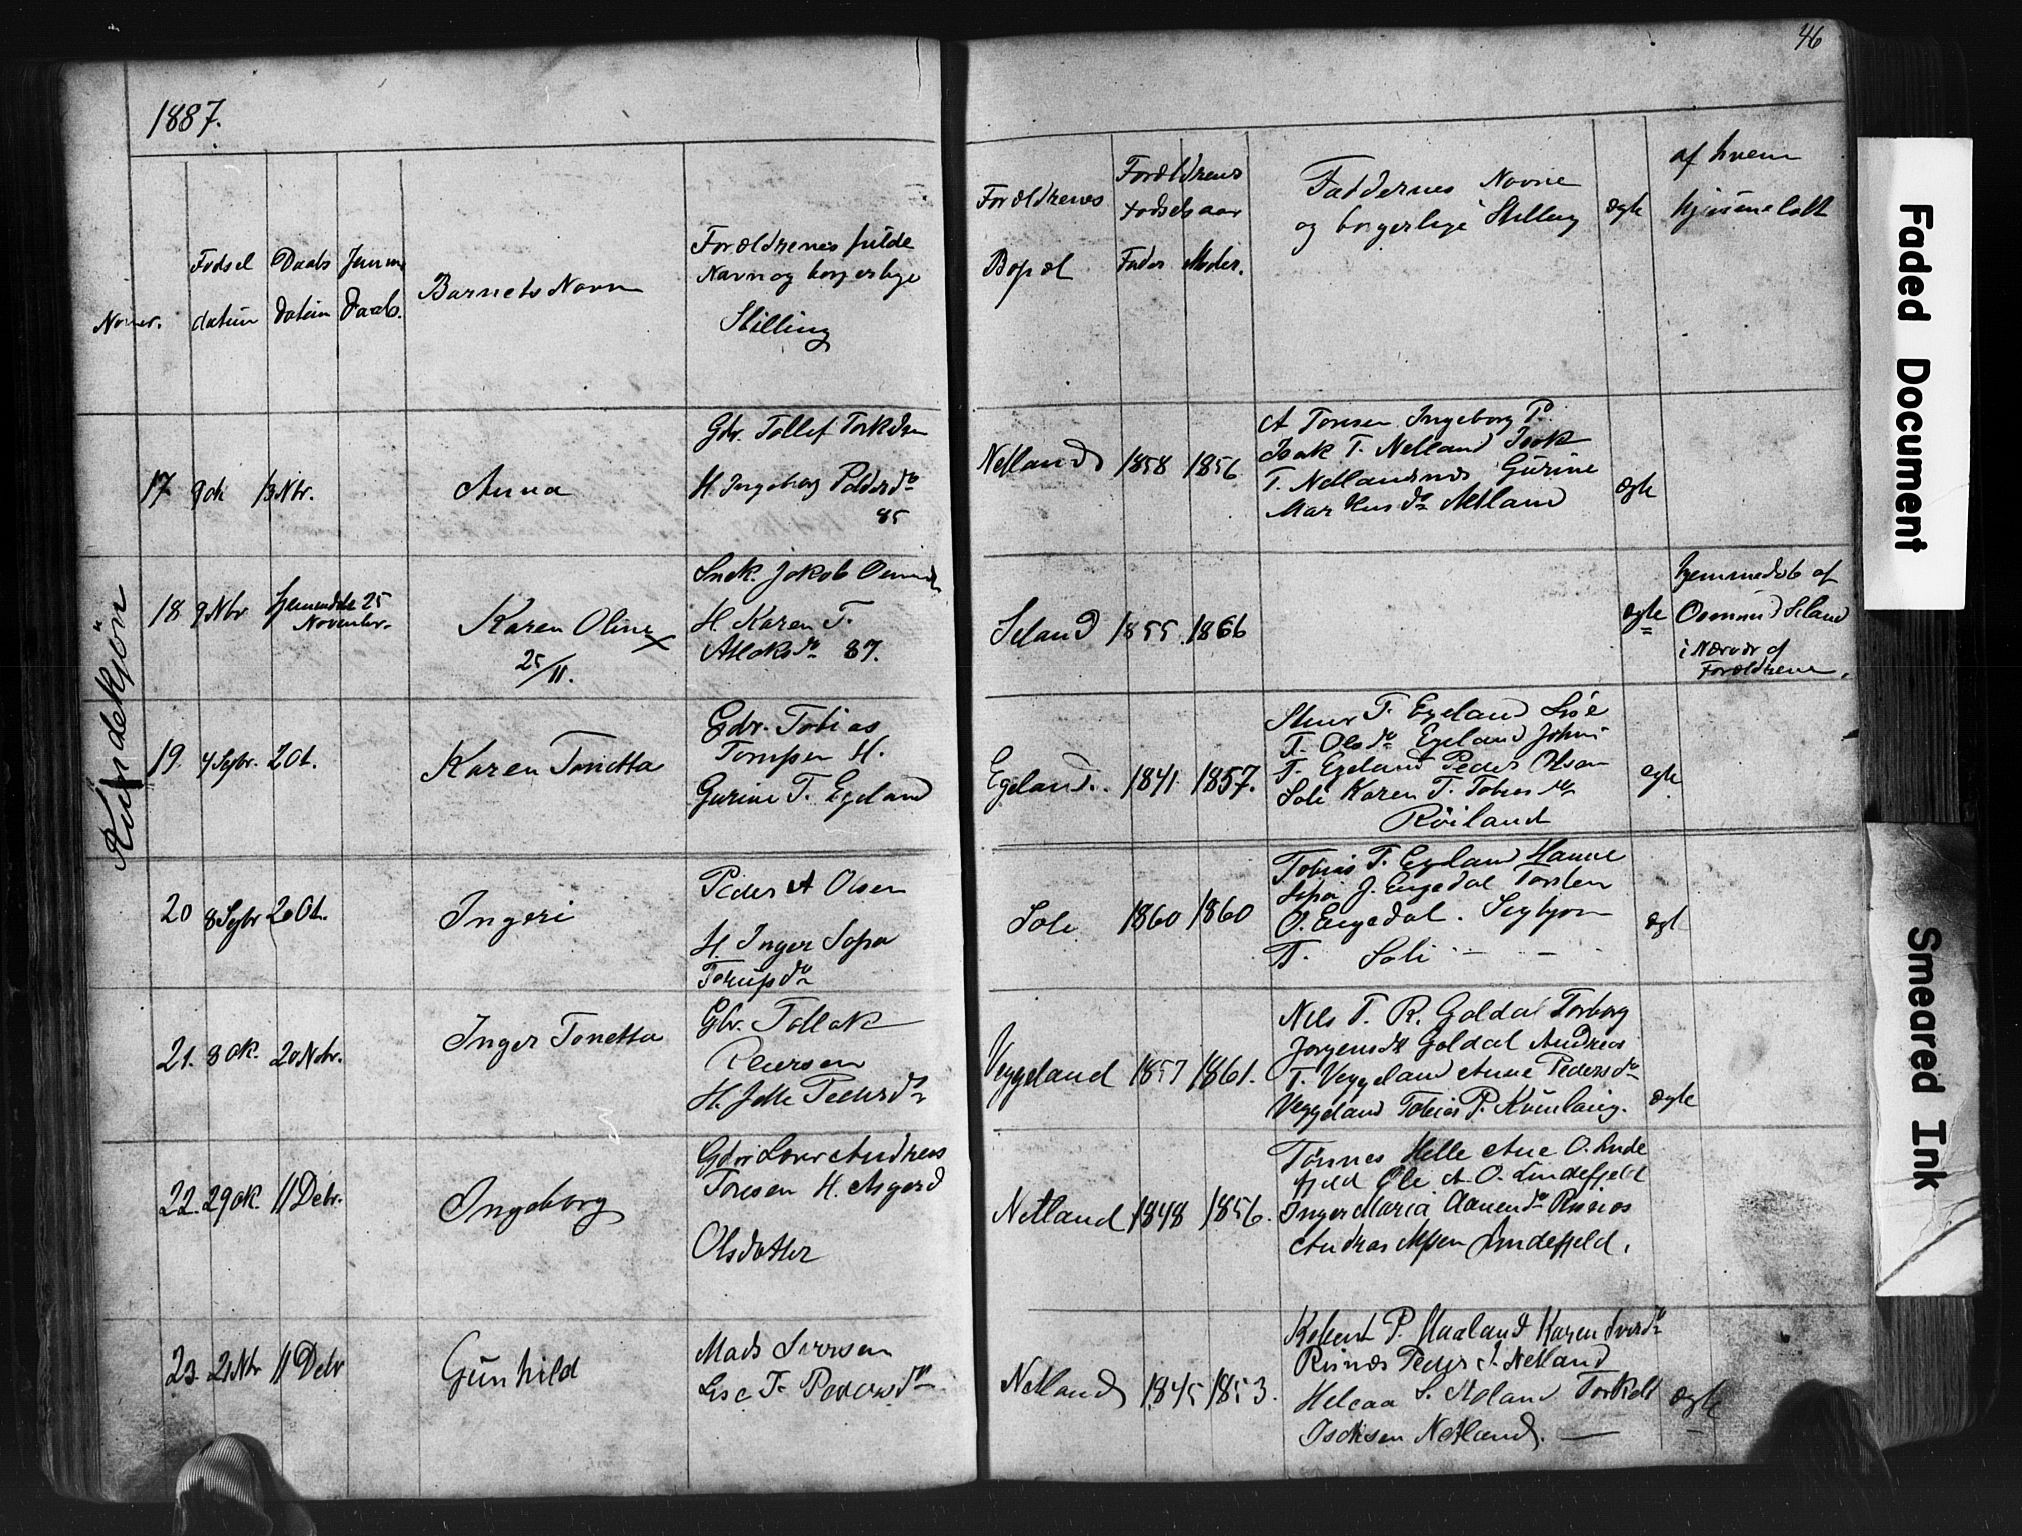 46
1887.
Nomer.
Fødsel datum
Daabs datum
Daab.
Barnets Navn
Forældrenes fulde
Navn og borgerlige
Stilling
Forældrenes
Bopæl
Forældrenes
Fødselsaar
Fader Moder.
Faddernes Navne
og borgerlige Stilling
ægte
af hvem
hjemmedøbt
Kvindekjön
17 9 Ok 13 Nbr. Anna
Gbr. Tollef Torkelsen
H. Ingeborg Pedersdr
85
Netland 1858 1856
A Toresen Ingeborg P.
Isak T. Netland Isak
T. Netlandsnes Gurine
Markusdr Netland
ægte
18 9 Nbr hjemmedøbt 25
November.
Karen Oline x
25/11.
Jakob
H. Karen T.
Aslaksdr 87.
Seland 1855 1866
ægte
hjemmedøb af
Osmund Seland
i Nærvær af
Forældrene.
19. 4 Sepbr. 2 Ot. Karen Tonetta
Gbr. Tobias
H.
Gurine T. Egeland
Egeland. 1841 1857.
T. Egeland
T. Olsdr Egeland
T. Egeland Peder Olsen
Soli Karen T. Tobiasdr
Röiland
egte
20 8 Sepbr 20 Ot. Ingeri
Peder A Olsen
H. Inger Sofia
Soli 1860 1860
Tobias T. Egeland Hanne
Sofia J. Engedal Torsten
O. Engedal. Segbjørn
T. Soli — —
ægt
21. 8 Ok. 20 Nobr. Inger Tonetta
Gbr. Tollak
Pedersen
H. Pedersdr
Veggeland 1857 1861.
Nils T. R. Goldal Torborg
Jørgensdt Goldal Andreas
T. Veggeland Anne Pedersdr
Veggeland Tobias P. Kvinlaug.
ægte
22. 29 Ok. 11 Debr. Ingeborg
Andreas
Toresen H. Asgerd
Olsdatter
Netland 1848 1856.
Tønnes Helle Ane O. Linde
fjeld Ole A. O. Lindefjeld
Inger Maria
Andreas Lindefjeld.
23. 21 Nbr 11 Debr Günhild
Mads Iversen
Lise T. Pedersdr
Netland 1845 1853.
P. Haaland Karen
Risnæs Peder J. Netland
S. Torkel
Isaksen Netland. —
ægte
Faded Document
Smeared Ink